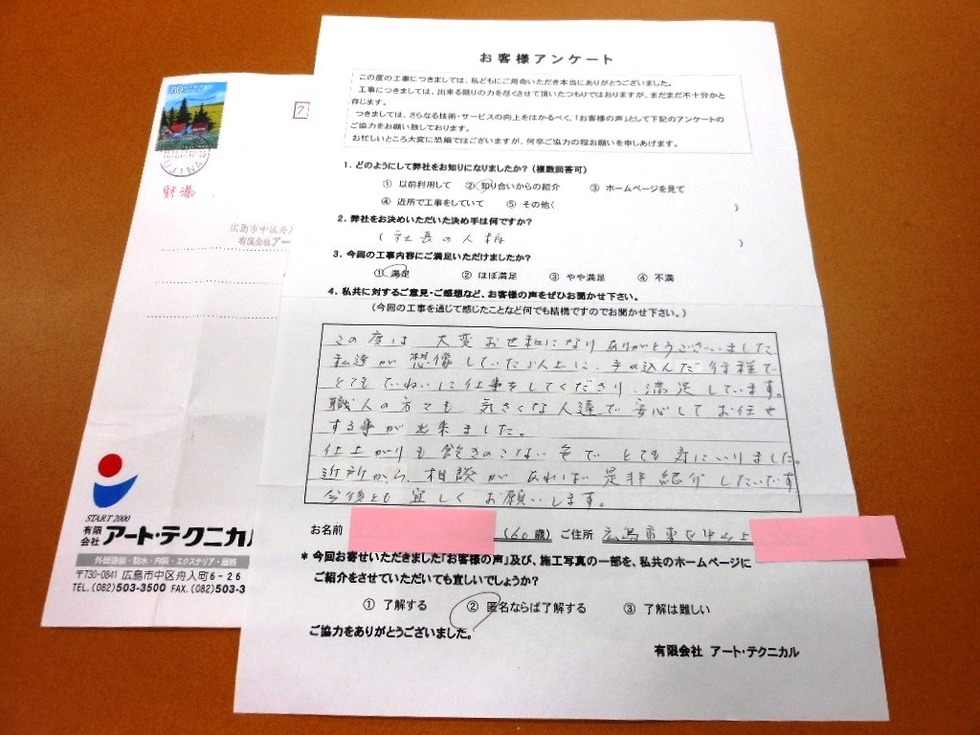 お客様アンケート
この度の工事につきましては、私どもにご用命いただき本当にありがとうございました。
工事につきましては、出来る限りの力を尽くさせて頂いたつもりではおりますが、まだまだ不十分かと
存じます。
つきましては、さらなる技術・サービスの向上をはかるべく、「お客様の声」として下記のアンケートの
ご協力をお願い致しております。
お忙しいところ大変に恐縮ではございますが、何卒ご協力の程お願いを申しあげます。
1. どのようにして弊社をお知りになりましたか？（複数回答可）
① 以前利用して ② 知り合いからの紹介 ③ ホームページを見て
④ 近所で工事をしていて ⑤ その他（ ）
2. 弊社をお決めいただいた決め手は何ですか？
（ 社長の人柄 ）
3. 今回の工事内容にご満足いただけましたか？
① 満足 ② ほぼ満足 ③ やや満足 ④ 不満
4. 私共に対するご意見・ご感想など、お客様の声をぜひお聞かせ下さい。
（今回の工事を通じて感じたことなど何でも結構ですのでお聞かせ下さい。）
この度は 大変お世話になりありがとうございました
私達が想像していた以上に、手の込んだ行程で
とてもていねいに仕事をしてくださり、満足しています。
職人の方々も 気さくな人達で安心してお任せ
する事が出来ました。
仕上がりも飽きのこない色で とても気にいりました。
近所から 相談があれば 是非紹介したいです
今後とも 宜しく お願いします。
お名前 （60歳） ご住所 広島市東区中山上
＊今回お寄せいただきました「お客様の声」及び、施工写真の一部を、私共のホームページに
ご紹介をさせていただいても宜しいでしょうか？
① 了解する ② 匿名ならば了解する ③ 了解は難しい
ご協力をありがとうございました。
有限会社 アート・テクニカル
60
UJINA
7
広島市中区舟
有限会社アー
START 2000
有限会社 アート・テクニカル
外壁塗装・防水・内装・エクステリア・屋根
〒730-0841 広島市中区舟入町6-26
TEL. (082)503-3500 FAX. (082)503-3